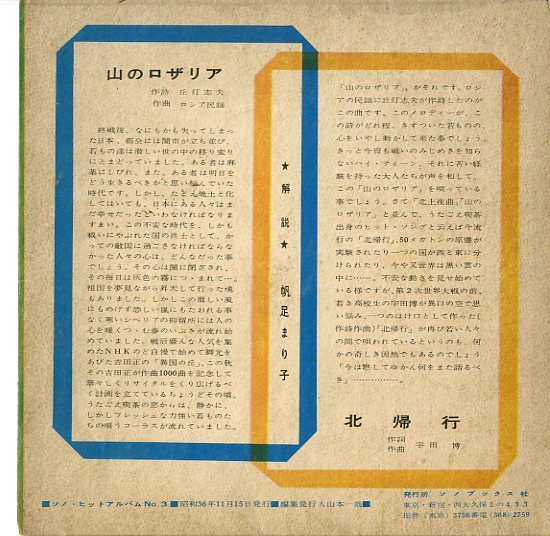 山のロザリア
作詩 丘灯志夫
作曲 ロシア民謡
終戦後、なにもかも失ってしまっ
た日本、都会には闇市が立ち並び、
若もの達は激しい世の中の移り変り
にとまどっていました。ある者は麻
薬にしびれ、また、ある者は明日を
どう生きるべきかと思い悩んでいた
時代です。しかし、たとえ焼土と化
してはいても、日本にある人々はま
だ幸せだったといわなければなりま
すまい。この不安な時代を、しかも
戦いにやぶれた国の兵士として、か
つての敵国に過ごさなければならな
かった人々の心は、どんなだった事
でしょう。その心は闇に閉ざされ、
その毎日は灰色の霧につゝまれて…。
祖国を夢見ながら昇天して行った魂
もありました。しかしこの激しい風
にもめげず悲しい風にもたおれる事
なく寒いシベリアの抑留所には人の
心を暖くつゝむ春のいぶきが流れ始
めていました。戦后盛んな人気を集
めたNHKのど自慢で始めて脚光を
あびた吉田正の「異国の丘」、この秋
その吉田正が作曲1000曲を記念して
華々しくリサイタルをくり広げるべ
く計画を立てているちょうどその頃、
うたごえ喫茶の窓からは、静かに、
しかしフレッシュな力強い若ものた
ちの唄うコーラスが流れていました。
★解説★ 帆足まり子
「山のロザリア」、がそれです。ロシ
アの民謡に丘灯志夫が作詩したのが
この曲です。このメロディーが、こ
の詩がどれ程、きずついた若ものの
心をいやし動かして来た事でしょう。
きっと今宵も戦いのみじめさを知ら
ないハイ・ティーン、それに苦い経
験を持った大人たちが声を和して、
この「山のロザリア」を唄っている
事でしょう。さて「北上夜曲」「山の
ロザリア」と並んで、うたごえ喫茶
出身のヒット・ソングと云えば今流
行の「北帰行」、50メガトンの原爆が
実験されたり一つの国が西と東に分
けられたり、今や又世界は黒い雲の
中に……。不安な動きを見せ始めて
いる様ですが、第2次世界大戦の前、
若き高校生の宇田博が異口の空で思
い悩み、一つのはけ口として作った(
作詩作曲)「北帰行」が再び若い人々
の間で唄われているというのも、何
かの奇しき因然でもあるのでしょう
「今は黙してゆかん何をまた語るべ
き」…………。
北帰行
作詞
作曲 宇田 博
■ソノ・ヒットアルバムNo.3■昭和36年11月15日発行■編集発行人山本一哉■
発行所 ソノブックス社
東京・新宿・西大久保1の433
振替(東京)3756番電(368)2759